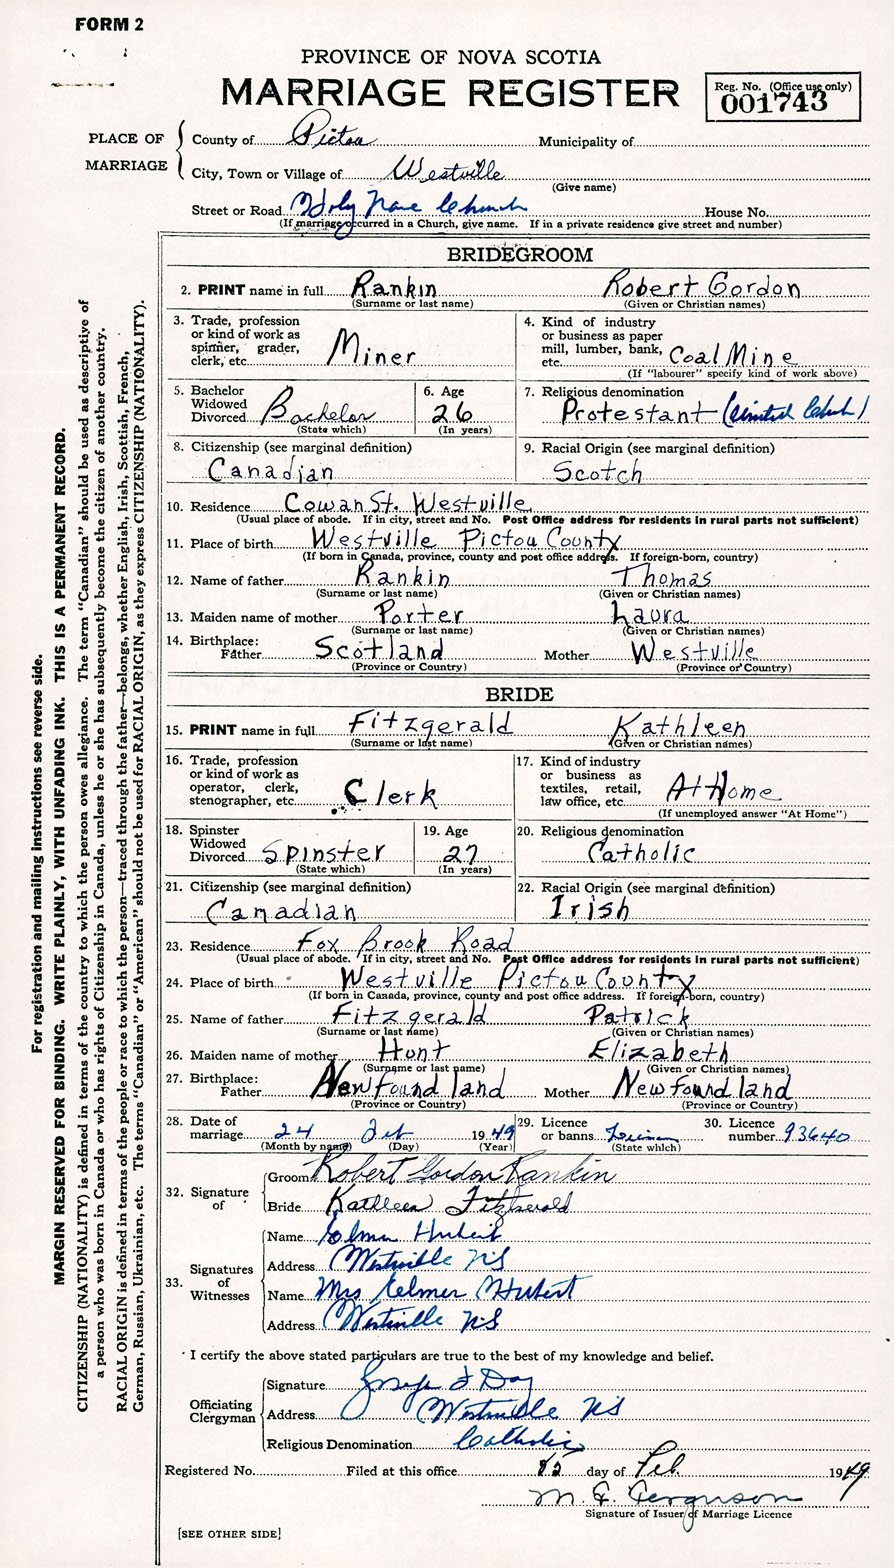 FORM 2
PROVINCE OF NOVA SCOTIA
MARRIAGE REGISTER
Reg. No. (Office use only)
001743
PLACE OF MARRIAGE
County of Pictou Municipality of
City, Town or Village of Westville
(Give name)
Street or Road Holy Name Church House No.
(If marriage occurred in a Church, give name. If in a private residence give street and number)
BRIDEGROOM
2. PRINT name in full Rankin Robert Gordon
(Surname or last name) (Given or Christian names)
3. Trade, profession or kind of work as spinner, grader, clerk, etc. Miner
4. Kind of industry or business as paper mill, lumber, bank, etc. Coal Mine
(If "labourer" specify kind of work above)
5. Bachelor Widowed Divorced Bachelor
(State which)
6. Age 26
(In years)
7. Religious denomination
Protestant (United Church)
8. Citizenship (see marginal definition)
Canadian
9. Racial Origin (see marginal definition)
Scotch
10. Residence Cowan St. Westville
(Usual place of abode. If in city, street and No. Post Office address for residents in rural parts not sufficient)
11. Place of birth Westville Pictou County
(If born in Canada, province, county and post office address. If foreign-born, country)
12. Name of father Rankin Thomas
(Surname or last name) (Given or Christian names)
13. Maiden name of mother Porter Laura
(Surname or last name) (Given or Christian names)
14. Birthplace:
Father Scotland Mother Westville
(Province or Country) (Province or Country)
BRIDE
15. PRINT name in full Fitzgerald Kathleen
(Surname or last name) (Given or Christian names)
16. Trade, profession or kind of work as operator, clerk, stenographer, etc. Clerk
17. Kind of industry or business as textiles, retail, law office, etc. At Home
(If unemployed answer "At Home")
18. Spinster Widowed Divorced Spinster
(State which)
19. Age 27
(In years)
20. Religious denomination
Catholic
21. Citizenship (see marginal definition)
Canadian
22. Racial Origin (see marginal definition)
Irish
23. Residence Fox Brook Road
(Usual place of abode. If in city, street and No. Post Office address for residents in rural parts not sufficient)
24. Place of birth Westville Pictou County
(If born in Canada, province, county and post office address. If foreign-born, country)
25. Name of father Fitzgerald Patrick
(Surname or last name) (Given or Christian names)
26. Maiden name of mother Hunt Elizabeth
(Surname or last name) (Given or Christian names)
27. Birthplace:
Father Newfoundland Mother Newfoundland
(Province or Country) (Province or Country)
28. Date of marriage 24 Feb 1949
(Month by name) (Day) (Year)
29. Licence or banns
(State which)
30. Licence number 93640
32. Signature of
Groom Robert Gordon Rankin
Bride Kathleen Fitzgerald
33. Signatures of Witnesses
Name Hubert
Address Westville NS
Name Mrs Elmer Hubert
Address Westville NS
I certify the above stated particulars are true to the best of my knowledge and belief.
Officiating Clergyman
Signature Day
Address Westville NS
Religious Denomination Catholic
Registered No. Filed at this office day of Feb. 1949
Ferguson
Signature of Issuer of Marriage Licence
[SEE OTHER SIDE]
For registration and mailing instructions see reverse side.
MARGIN RESERVED FOR BINDING. WRITE PLAINLY, WITH UNFADING INK. THIS IS A PERMANENT RECORD.
CITIZENSHIP (NATIONALITY) is defined in terms of the country to which the person owes allegiance. The term "Canadian" should be used as descriptive of
a person who was born in Canada or who has rights of Citizenship in Canada, unless he or she has subsequently become the citizen of another country.
RACIAL ORIGIN is defined in terms of the people or race to which the person—traced through the father—belongs, whether English, Irish, Scottish, French,
German, Russian, Ukrainian, etc. The terms "Canadian" or "American" should not be used for RACIAL ORIGIN, as they express CITIZENSHIP (NATIONALITY).